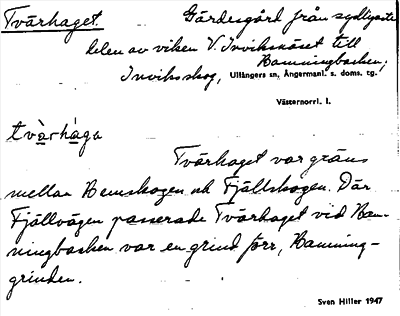 Tvärhaget. Gärdesgård från sydligaste
delen av viken V. Inviksnäset till
Bamningbacken,
Inviksskog, Ullångers sn, Ångermanl. s. doms. tg.
Västernorrl. l.
tvàrhàga
Tvärhaget var gräns
mellan Bemskogen och Fjällskogen. Där
Fjällvägen passerade Tvärhaget vid Bam-
ningbacken var en grind förr, Bamning-
grinden.
Sven Hiller 1947